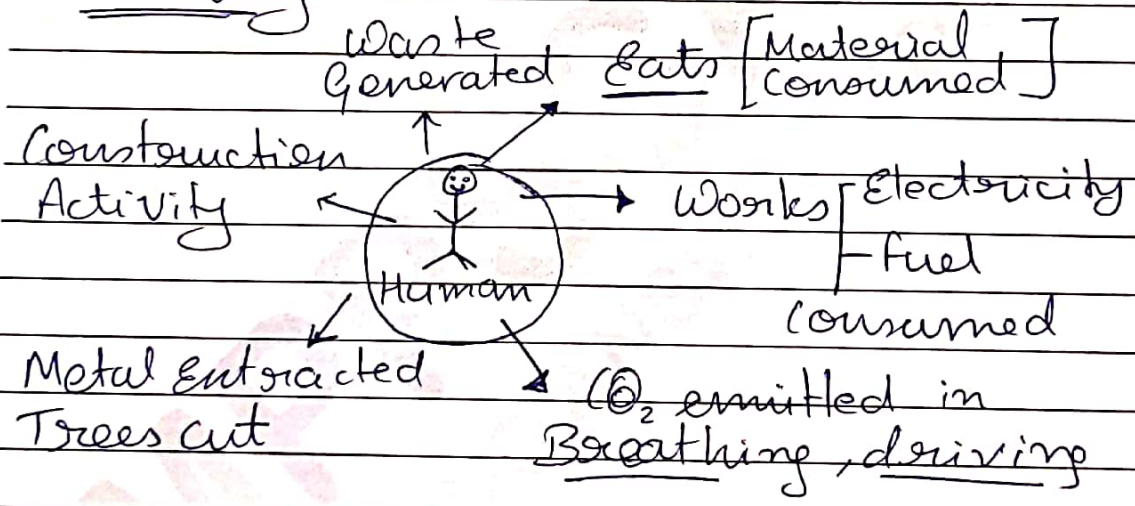 Waste
Generated
Eats [Material Consumed]
Construction
Activity
Works [Electricity
Fuel
Consumed
Human
Metal Extracted
Trees cut
CO₂ emitted in
Breathing, driving